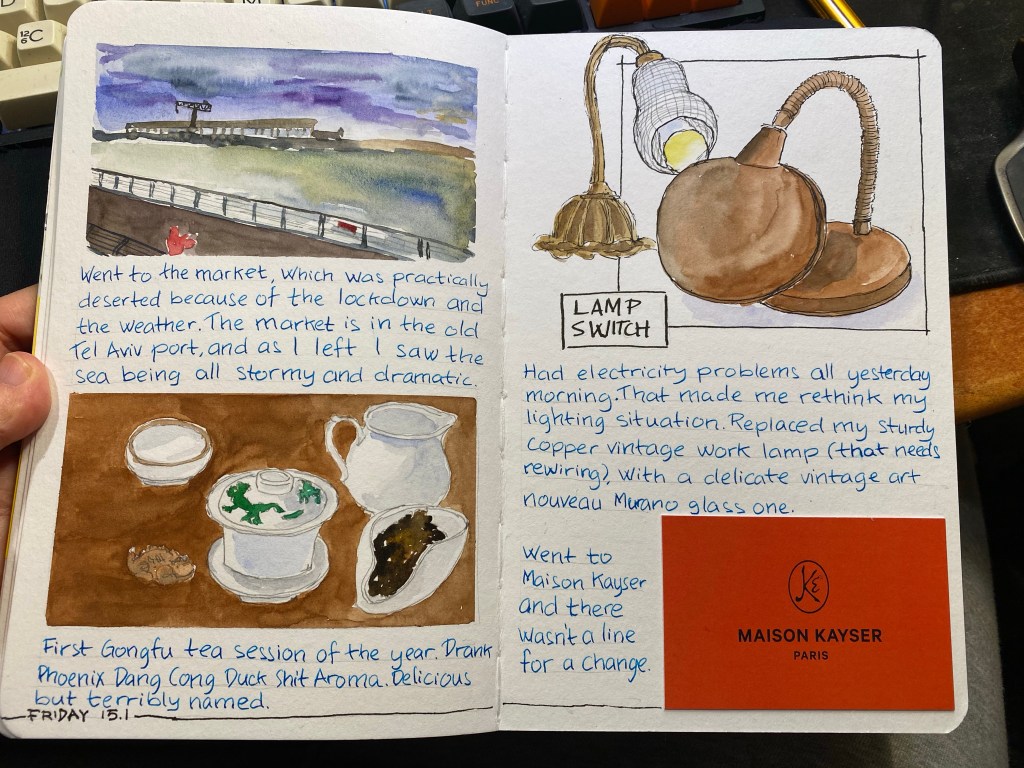 Went to the market, which was practically
deserted because of the lockdown and
the weather. The market is in the old
Tel Aviv port, and as I left I saw the
sea being all stormy and dramatic.
First Gongfu tea session of the year. Drank
Phoenix Dang Cong Duck Shit Aroma. Delicious
but terribly named.
FRIDAY 15.1
LAMP
SWITCH
Had electricity problems all yesterday
morning. That made me rethink my
lighting situation. Replaced my sturdy
copper vintage work lamp (that needs
rewiring), with a delicate vintage art
nouveau Murano glass one.
Went to
Maison Kayser
and there
wasn't a line
for a change.
MAISON KAYSER
PARIS
C
M
FUNC